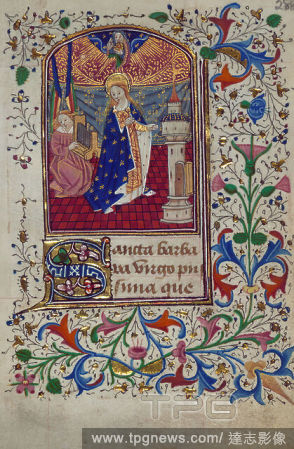 Sancta barba
ra virgo pii
ssima que
TPG
www.tpgnews.com/ 達志影像